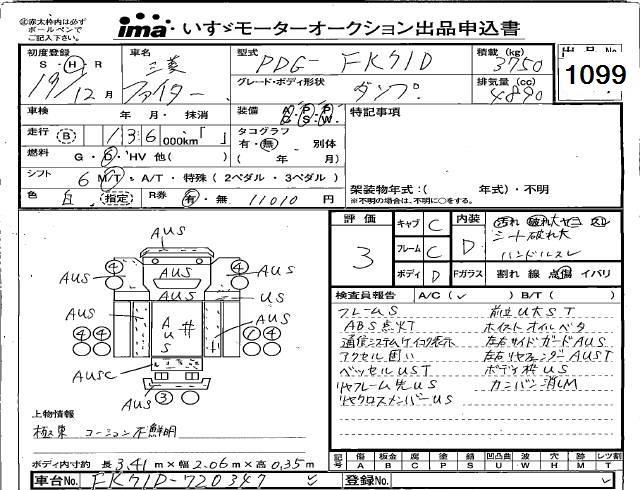 ㊟赤太枠内は必ず
ボールペンで
ご記入下さい。
ima・いすゞモーターオークション出品申込書
初度登録
S・H・R
19/12月
車名
三菱
ファイター
型式
PDG-FK71D
グレード・ボディ形状
ダンプ
積載(kg)
3750
排気量(cc)
4890
出品No
1099
車検 年・月・抹消
走行 B 136 000km・「 」
燃料 G・D・HV 他( )
シフト 6 M/T・A/T・特殊(2ペダル・3ペダル)
色 白 指定 R券 有・無 11010 円
装備 A・P・P
C・S・W
タコグラフ
有・無・別体
( 年 月)
特記事項
架装物年式:( 年式)・不明
※不明の場合は、不明に○をする。
評価
3
キャブ C
フレーム C
ボディ D
内装 D
汚れ 破れ大 ヤコ スレ
シート破れ大
ハンドルスレ
Fガラス 割れ 線 点傷 イバリ
検査員報告 A/C(✓) B/T( )
フレームS
ABS点灯
通信システムケイコク表示
アクセル固い
ベッセルUST
リヤフレーム先US
リヤクロスメンバーUS
前立U大ST
ホイストオイルベタ
左右サイドガードAUS
左右リヤフェンダAUST
ボディ枠US
カンバン消LM
AUS
④ ④
AUS AUS AUS
AUS US
AUS AUS # AUS
④④ ①④
AUSC
AUS ③
上物情報
極東 コーション不鮮明
ボディ内寸約 長 3.41 m×幅 2.06 m×高 0.35 m
記号 傷 板金 腐 塗 錆 凹凸曲 波 穴 跡 レツ割
A B C P S U・W H M T
車台No. FK71D-720347 ✓
登録No.